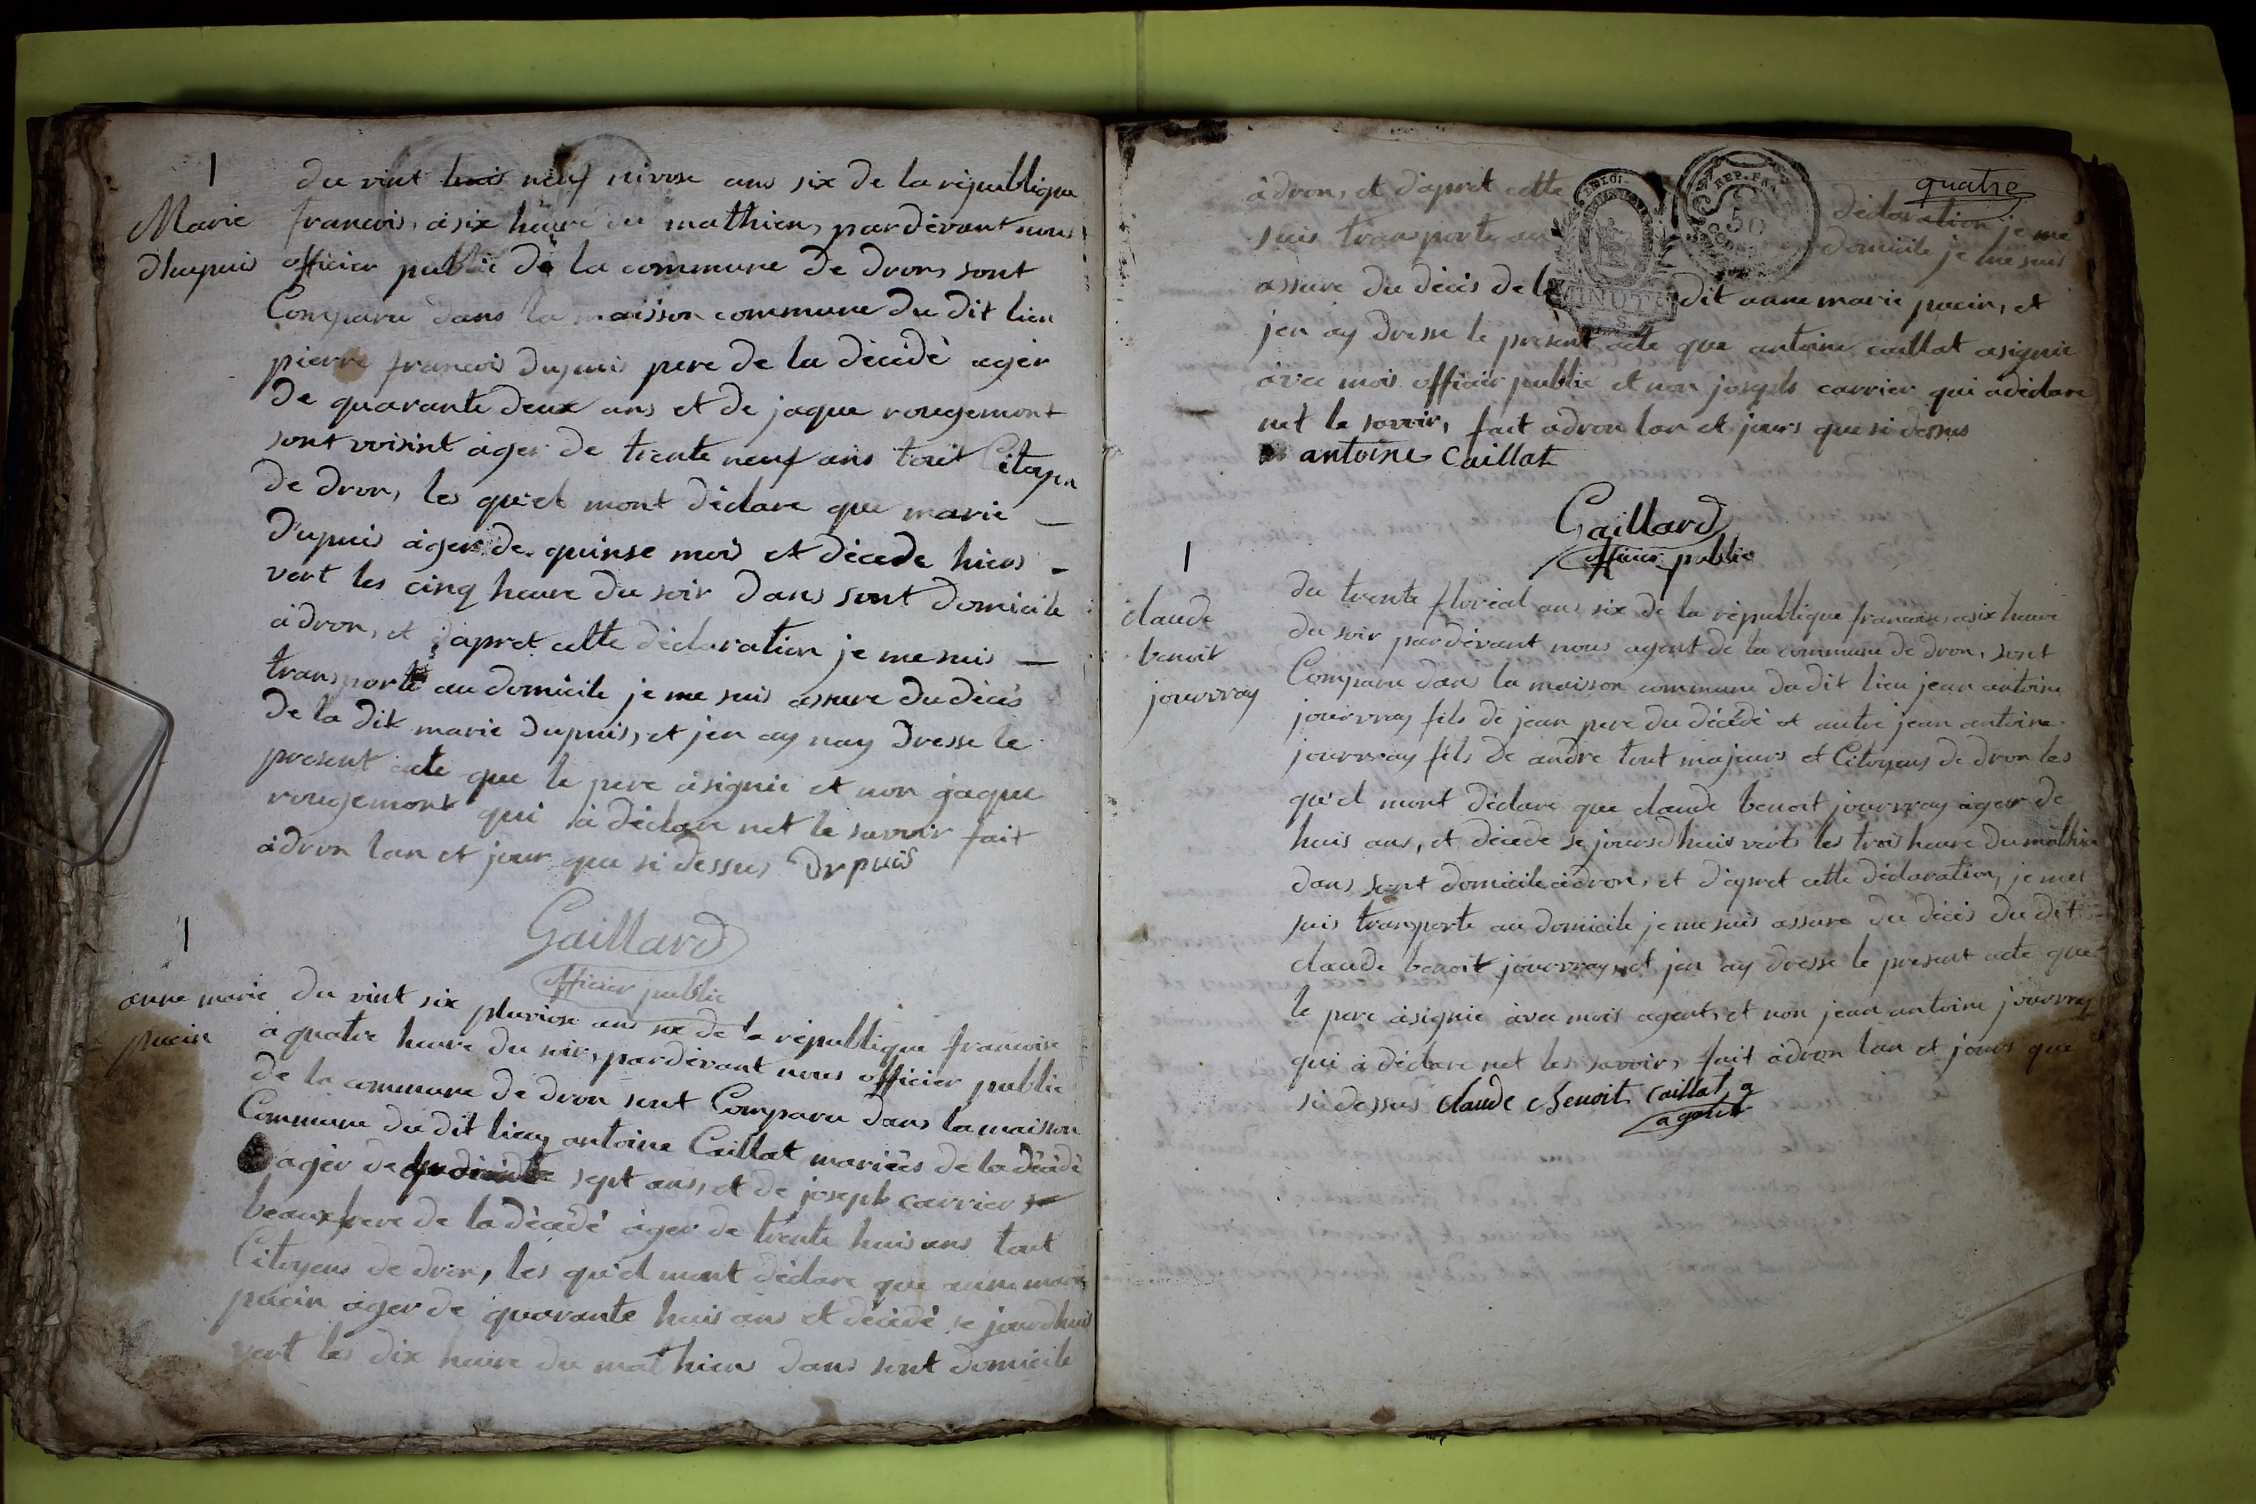 1
Marie
dhupuis
du vint huis neuf nivose ans six de la république
francois, à six heure du mathien, pardevant nous
officier public de la commune de drom sont
Comparu dans la maisson commune du dit lieu
pierre francois dupuis pere de la décédé ager
de quarante deux ans et de jaque rougemont
sont voisint àger de trente neuf ans tout Citoyen
de dron, les qu'el mont déclare que marie
dupuis àger de quinse mois et décede hiers
vert les cinq heure du soir dans sont domicile
à dron, et d'apret cette déclaration je me suis
transporte au domicile je me suis assure du décès
de la dit marie dupuis, et jen ay nay dresse le
present acte que le pere à signie et non jaque
rougemont qui à déclare net le savoir fait
à dron lan et jour que si dessus Dupuis
Gaillard
officier public
1
anne marie
pacin
du vint six pluviose ans six de la république francoise
à quatre heure du soir, pardevant nous officier public
de la commune de dron sont Comparu dans la maison
Commune du dit lieu antoine Caillat mariés de la décédé
ager de sept ans, et de joseph carrier
beauxfrere de la décédé àger de trente huis ans tout
Citoyens de dron, les qu'el mont déclare que anne marie
pacin ager de quarante huis ans et décédé se jourdhuis
vert les dix heure du mathiens dans sont domicile
quatre
à dron, et d'apret cette déclaration je me
suis transporte au domicile je me suis
assure du décès de la dit anne marie pacin, et
jen ay dresse le present acte que antoine caillat asignie
avec mois officier public et non joseph carrier qui a déclare
net le savoir, fait a dron lan et jours que si dessus
antoine Caillat
Gaillard
officier public
1
claude
benoit
jouvray
du trente floréal ans six de la république francoise, a six heure
du soir pardevant nous agent de la commune de dron, sont
Comparu dans la maison commune du dit lieu jean antoine
jouvray fils de jean pere du décédé et autre jean antoine
jouvray fils de andre tout majeurs et Citoyens de dron les
qu'el mont déclare que claude benoit jouvray àger de
huis ans, et décede se jourdhuis verts les trois heure du mathien
dans sont domicile à dron, et d'apret cette déclaration, je met
suis transporte au domicile je me suis assure du décès du dit
claude benoit jouvray, et jen ay dresse le present acte que
le pere à signie àvec mois agent, et non jean antoine jouvray
qui à déclare net les savoir, fait à dron lan et jours que
si dessus claude benoit caillat
agent